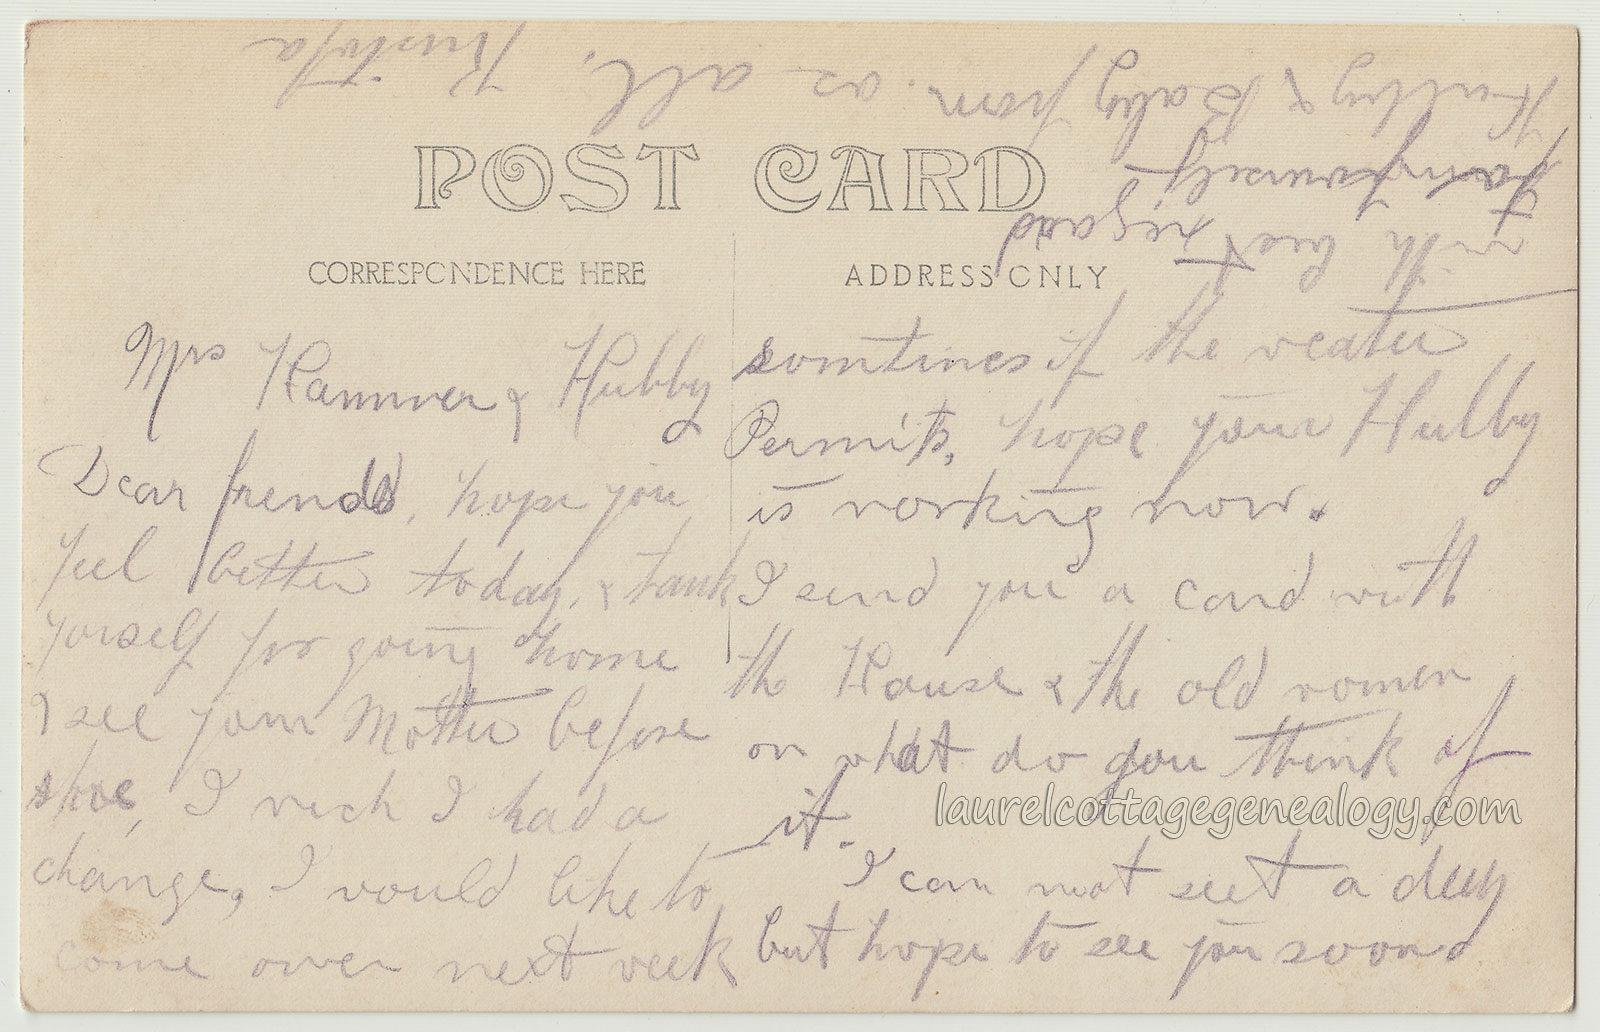 POST CARD
CORRESPONDENCE HERE
ADDRESS ONLY
Mrs Hammer & Hubby
Dear frends, hope you
feel better today, & tank
yorself for going home
I see your Mother before
shoe, I wich I had a
change, I would like to
come over next week
somtimes if the weater
Permits, hope your Hubby
is working now.
I send you a card with
the House & the old women
on what do you think of
it.
I can not seet a deey
but hope to see you soon
with best regard
to yourself
Hubby & Baby from. as all,
laurelcottagegenealogy.com